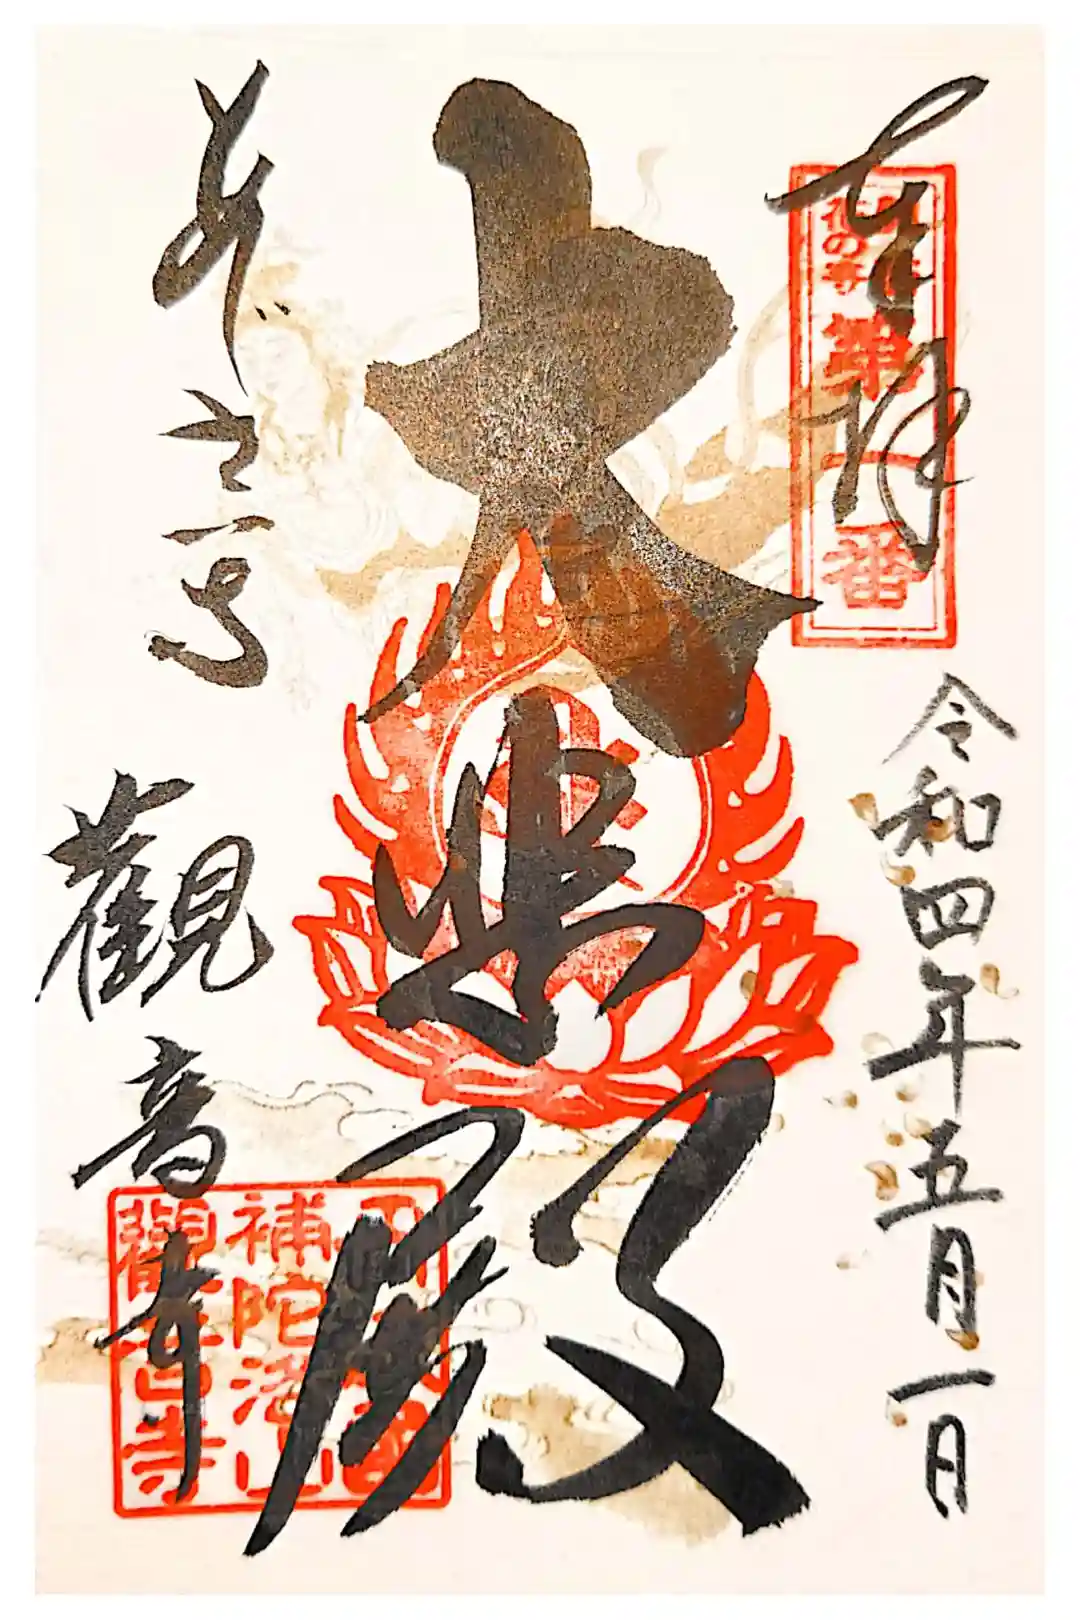 奉拝
関西
花の寺
第一番
令和四年五月一日
大悲殿
あじさい寺
觀音寺
補陀洛山
觀音寺